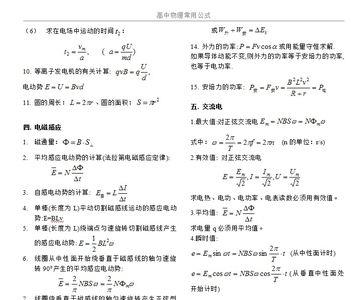 高中物理常用公式
（6） 求在电场中运动的时间 t₂：
t₂ = vₘ/a， （a = qU/md）
10. 等离子发电机的有关计算：qvB = qU/d，
电动势 E = U = Bvd
11. 圆的周长：L = 2πr、圆的面积：S = πr²
四. 电磁感应
1. 磁通量：Φ = B·S⊥
2. 平均感应电动势的计算(法拉第电磁感应定律)：
E̅ = N ΔΦ/Δt
3. 自感电动势的计算：E自 = L ΔI/Δt
4. 单棒(长度为 L)平动切割磁感线运动的感应电动
势:E=BLv
5. 单棒(长度为 L)绕端点匀速旋转切割磁感线产生
的感应电动势：E = 1/2 BL²ω
6. 线圈从中性面开始绕垂直于磁感线的轴匀速旋
转 90°产生的平均感应电动势：
E̅ = 2/π NBSω = 2/π NΦₘω
或 W外 = W安 + ΔEₖ
14. 外力的功率：P = Fv cos α 或用能量守恒求解.
如果导体动能不变,则外力的功率等于安培力的功率,
也等于电功率.
15. 安培力的功率：P安 = F安v = B²L²v²/(R + r) = P电
五. 交流电
1.最大值:对正弦交流电 Eₘ = NBSω = NΦₘω
式中：ω = 2π/T = 2πf = 2πn （n 的单位：r/s）
2.有效值: 对正弦交流电
E = Eₘ/√2, I = Iₘ/√2, U = Uₘ/√2
求电热、电功、电功率、电表读数必须用有效值。
3.平均值: E̅ = N ΔΦ/Δt
求电量 q 必须用平均值。
4.瞬时值:
e = Eₘ sin ωt = NBSω sin 2π/T · t （从中性面计时）
e = Eₘ cos ωt = NBSω cos 2π/T · t （从垂直中性面处
开始计时）